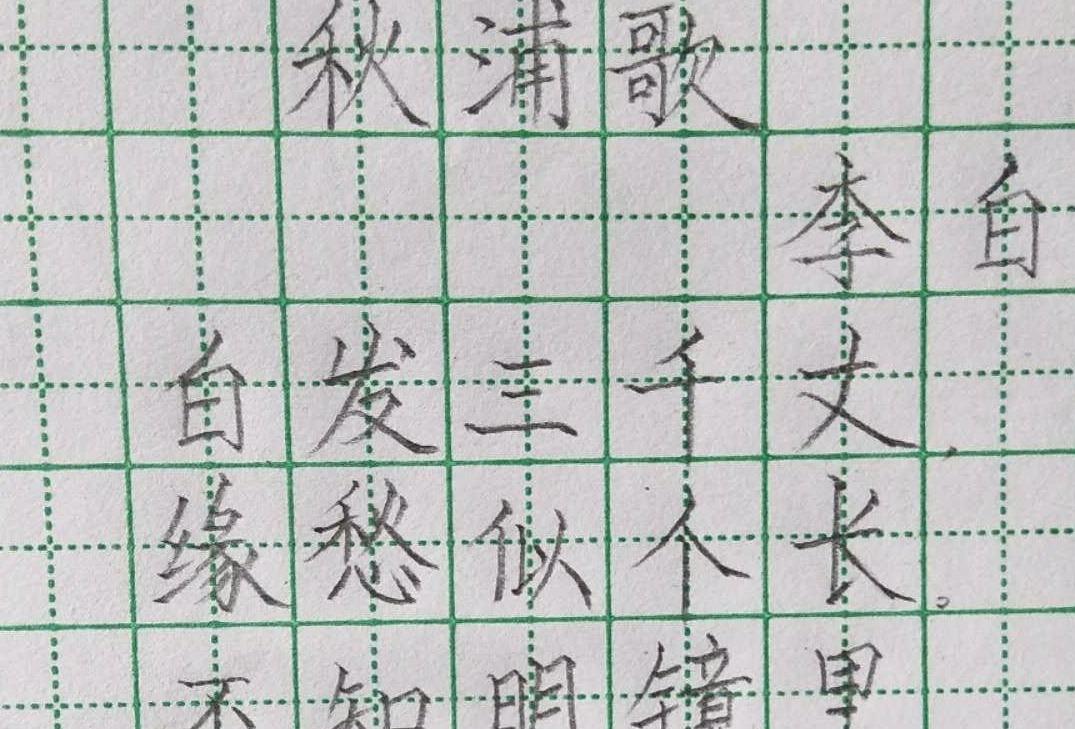 秋浦歌
李白
白发三千丈，
缘愁似个长。
不知明镜里